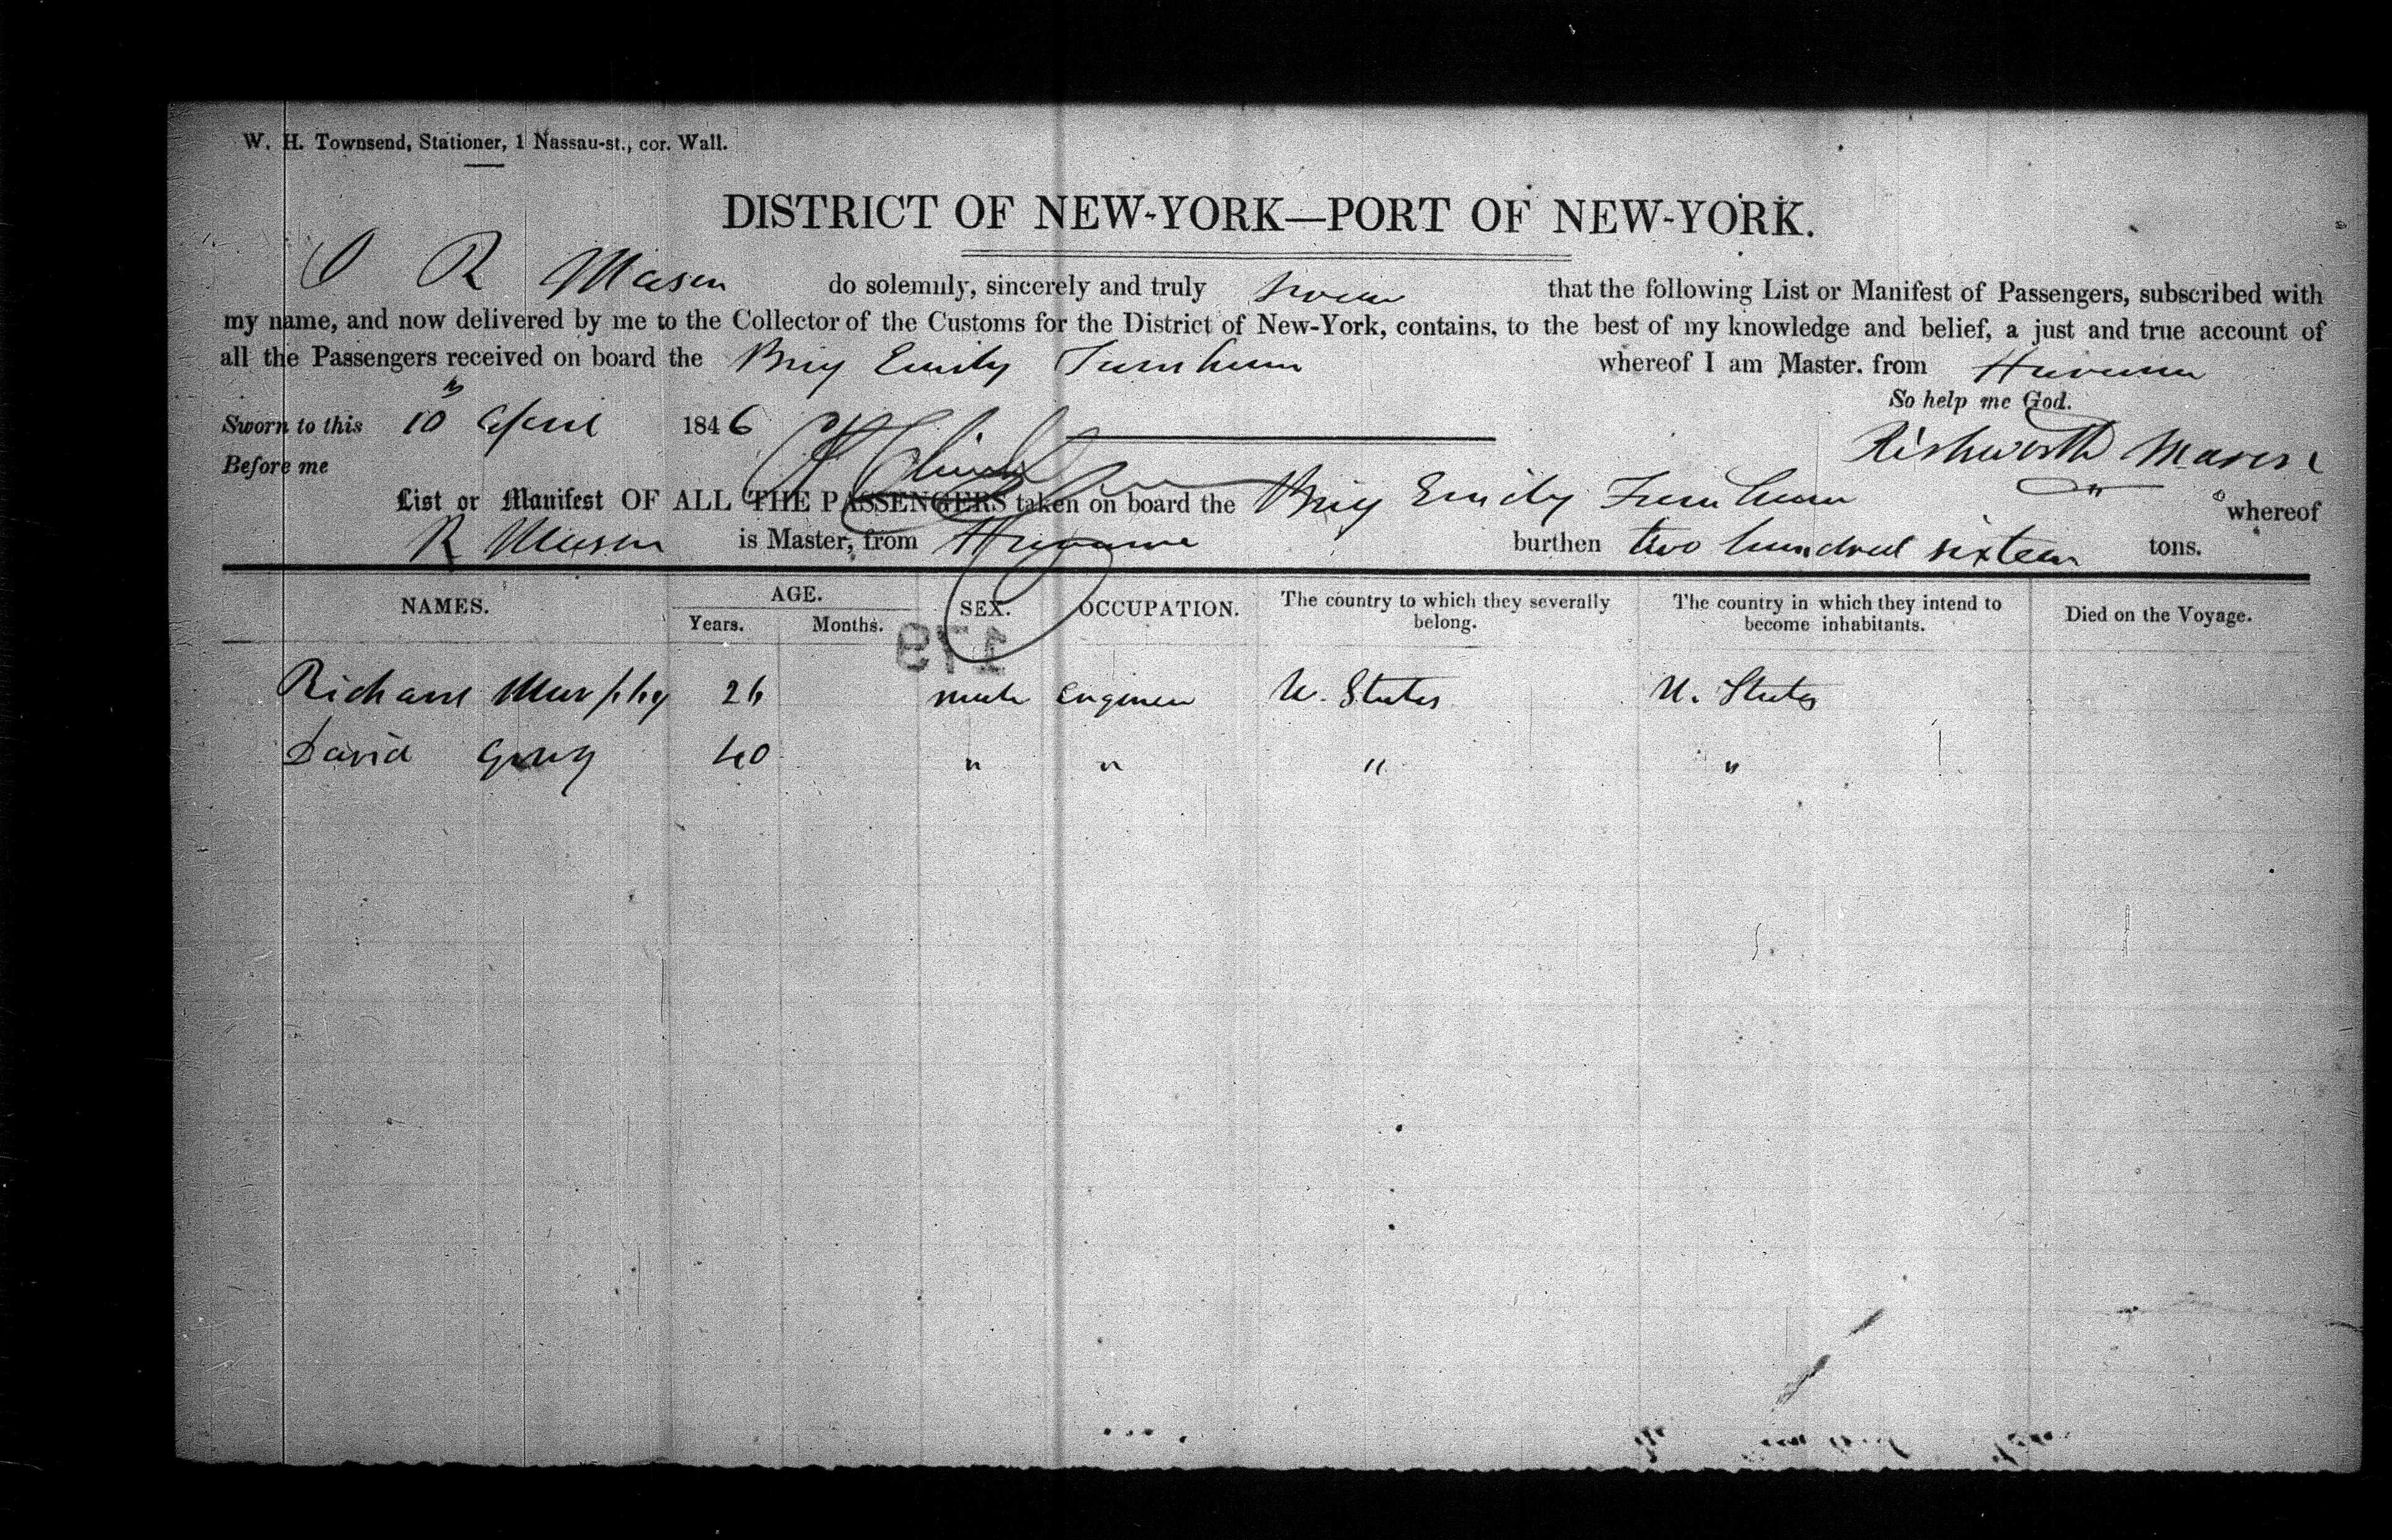 W. H. Townsend, Stationer, 1 Nassau-st., cor. Wall.
DISTRICT OF NEW-YORK—PORT OF NEW-YORK.
I R Mason do solemnly, sincerely and truly swear that the following List or Manifest of Passengers, subscribed with
my name, and now delivered by me to the Collector of the Customs for the District of New-York, contains, to the best of my knowledge and belief, a just and true account of
all the Passengers received on board the Brig Emily Farnham whereof I am Master, from Havana
So help me God.
Sworn to this 10 April 1846
Rishworth Mason
Before me
List or Manifest OF ALL THE PASSENGERS taken on board the Brig Emily Farnham whereof
R Mason is Master, from Havana burthen two hundred sixteen tons.
NAMES. AGE. SEX. OCCUPATION. The country to which they severally belong. The country in which they intend to become inhabitants. Died on the Voyage.
Years. Months.
179
Richard Murphy 26 male Engineer U. States U. States
David Gray 40 " " " "